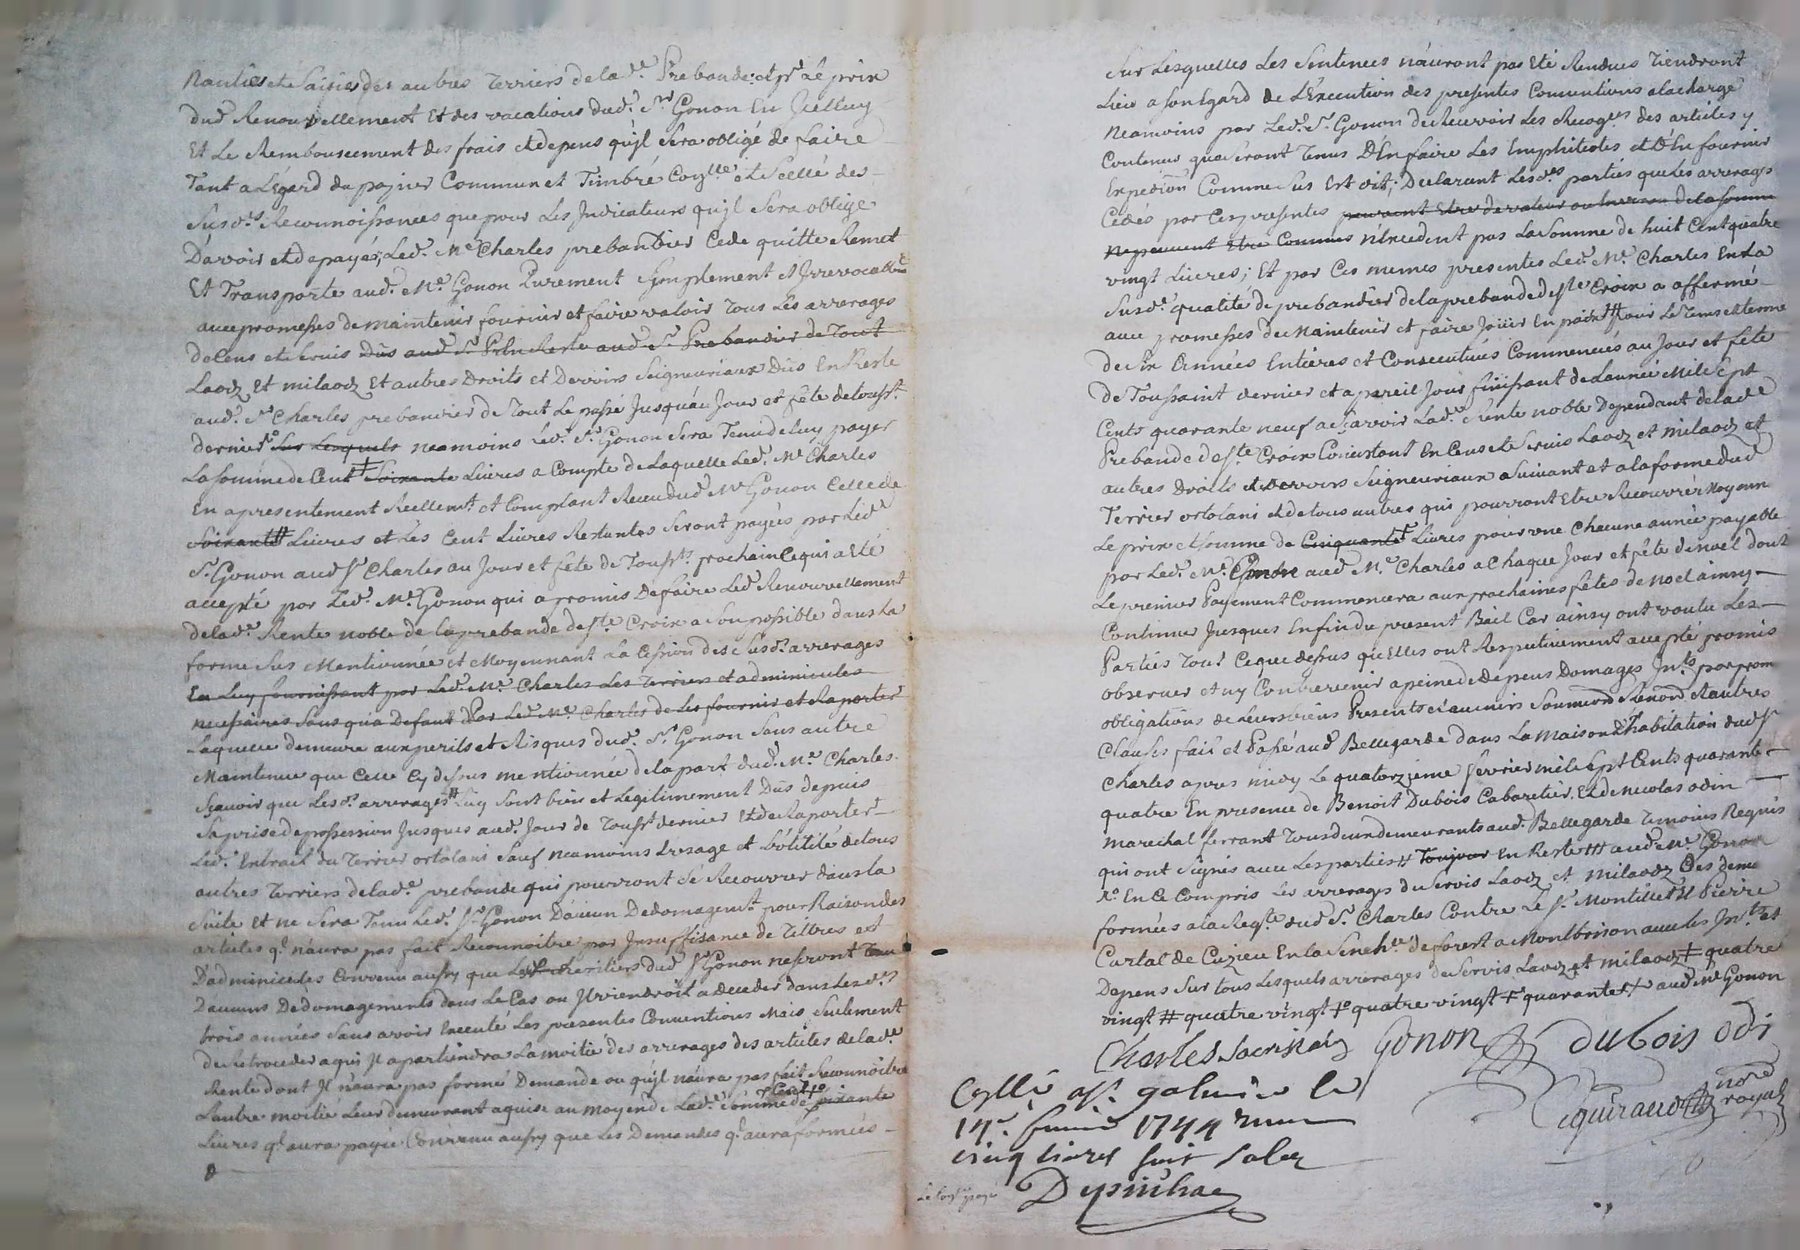 Nanties et saisies des autres Terriers de lad.e Prebande; et pr. le prix
dud. Renouvellement Et des vacations dud. Sr. Gonon En Icelluy
Et Le Remboursement des frais et depens qu'jl sera obligé de faire
Tant a L'Egard du papier Commun et Timbré Coylle et scellé des
Susd.es Reconnoissances que pour Les Jndicateurs qu'jl sera obligé
D'avoir et de payer; Led. Me. Charles prebandier Cede quitte Remet
Et Transporte aud. Me. Gonon Purement simplement et Jrrevocablem.
avec promesses de maintenir fournir et faire valoir Tous Les arrerages
de Cens et servis Dûs aud. Sr. aud. Sr. Prebandier de Tout
Laodz Et milaodz Et autres Droits et Devoirs Seigneuriaux Dûs En Reste
aud. Sr. Charles prebandier de Tout Le passé Jusqu'au Jour et fête de touss.t
dernier Sur Lesquels neamoins led. Sr. Gonon sera Tenu de luy payer
La somme de Cent soixante Livres a Compte de Laquelle Led. Me. Charles
En a presentement Reellem.t et Comptant Receu dud. Me. Gonon Celle de
soixante # Livres et Les Cent Livres Restantes seront payées par Led.
Sr. Gonon aud. Sr. Charles au Jour et fête de Touss.ts prochain Ce qui a Eté
accepté par Led. Me. Gonon qui a promis De faire Led. Renouvellement
de lad.e Rente noble de la prebande de ste. Croix a son possible dans La
forme sus Mentionnée et Moyennant La Cession des susd. arrerages
En Luy fournissant par Led. Me. Charles Les Terriers et adminicules
necessaires sans qu'a Defaut Par Led. Me. Charles de Les fournir et Raporter
Laquelle demeure aux perils et Risques dud. Sr. Gonon sans autre
Maintenue que Celle Cy dessus mentionnée de la part dud. Me. Charles
sçavoir que Les d. arrerages # Luy sont bien et Legitimement Dûs depuis
sa prise de possession Jusques aud. Jour de Touss.t dernier Et de Raporter
Led. Extrait du Terrier ortolani sauf neamoins L'usage et L'utilité de tous
autres Terriers de lad.e prebande qui pourront se Recouvrer dans La
suite Et ne sera Tenu Led. Sr. Gonon D'aucun Dedomagem.t pour Raison des
articles q.l n'aura pas fait Reconnoitre par Jnsuffisance de Tiltres et
D'adminicules Convenu aussy que Les heritiers dud. Sr. Gonon ne seront Tenu
D'aucuns Dedomagements dans Le Cas ou Jl viendroit a deceder dans Les d.es
trois années sans avoir Executé Les presentes Conventions Mais seulement
de Retroceder a qui Jl apartiendra La moitié des arrerages des articles de lad.e
Rente dont Jl n'aura pas formé Demande ou qu'jl n'aura pas fait Reconnoitre
L'autre moitié Leur demeurant aquise au moyen de Lad.e somme de Cent soixante
Livres q.l aura payée Convenu aussy que Les Demandes q.l aura formées
Sur Lesquelles Les sentences n'auront pas Eté Rendues Tiendront
Lieu a son Egard de L'Execution des presentes Conventions a la charge
Neamoins par Led. Sr. Gonon de Recevoir Les Recog.es des articles y
Contenus qu'a seront Tenus D'En faire Les Emphiteotes et D'En fournir
Expedi.on Comme sus Est dit; Declarant Lesd.es parties que Les arrerages
Cédés par Ces presentes peuvent Etre de valeur de La somme
ne peuvent Etre Connus n'Excedent pas La somme de huit Cent quatre
vingt Livres; Et par Ces memes presentes Led. Me. Charles En La
susd.e qualité de prebandier de la prebande de ste. Croix a affermé
avec promesses de Maintenir et faire Joüir En paix # pour Le Tems et terme
de six Années Entieres et Consecutives Commencées au Jour et fête
De Toussaint dernier et a pareil Jour finissant de L'année Mil sept
Cents quarante neuf a sçavoir Lad.e Rente noble Dependant de lad.e
Prebande de ste. Croix Consistant En Cens et servis Laodz et milaodz et
autres Droits et devoirs Seigneuriaux a suivant et a la forme dud.
Terrier ortolani et de tous autres qui pourront Etre Recouvrés Moyenn.
Le prix et somme de Cinquante Livres pour une Chacune année payable
par Led. Me. Gonon aud. Me. Charles a Chaque Jour et fête de noel dont
Le premier Payement Commencera aux prochaines fêtes de Noel ainsy
Continuer Jusques En fin du present Bail Car ainsy ont voulu Les
Parties Tout Ce que dessus qu'Elles ont Respectivement accepté promis
observer et n'y Contrevenir a peine de depens Domages Jn.ts par prom.
obligations de Leurs biens Presents et avenirs soum.ons Renon.ons et autres
Clauses fait et Passé aud. Bellegarde dans La maison D'habitation dud. Sr.
Charles apres midy Le quatorzieme fevrier mil sept Cents quarante
quatre En presence de Benoit Dubois Cabaretier Et de Nicolas odin
marechal ferrant Tous deux demeurants aud. Bellegarde Temoins Requis
qui ont signés avec Les parties # Toujour En Reste ## aud. Me. Gonon
Xo. En Ce Compris Les arrerages du servis Laodz et milaodz Des dema
formées a la Req.te dud. Sr. Charles Contre Le Sr. Montillet Et Pierre
Curtal de Cuzieu En la senech.ée de forest a Montbrison avec les Jn.ts et
Depens sur tous Lesquels arrerages du servis Laodz et milaodz # quatre
vingt # quatre vingt # quarante # aud. Me. Gonon
Charles Sacristain Gonon Dubois odi
Eguiraud nore royal
Cyllé a St. galmier le
14e. fevrier 1744 Recu
cinq livres huit solz
Depinhac
Le seel payé